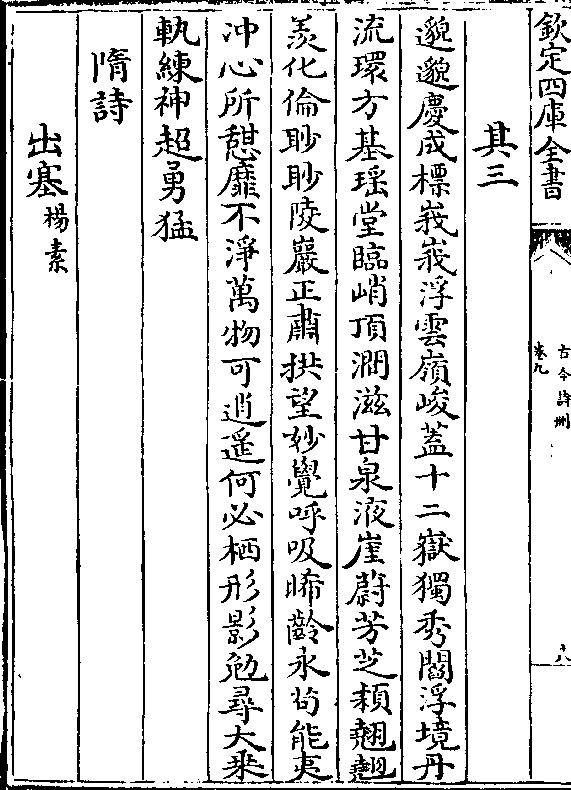 欽定四庫全書
古今詩刪
卷九
八
其三
邈邈慶成標峩峩浮雲嶺峻蓋十二嶽獨秀閻浮境丹
流環方基瑶堂臨峭頂澗滋甘泉液崖蔚芳芝穎翹翹
羨化倫眇眇陵巖正肅拱望妙覺呼吸晞齡永茍能夷
冲心所憇靡不淨萬物可逍遥何必栖形影勉尋大乗
軌練神超勇猛
隋詩
出塞楊素